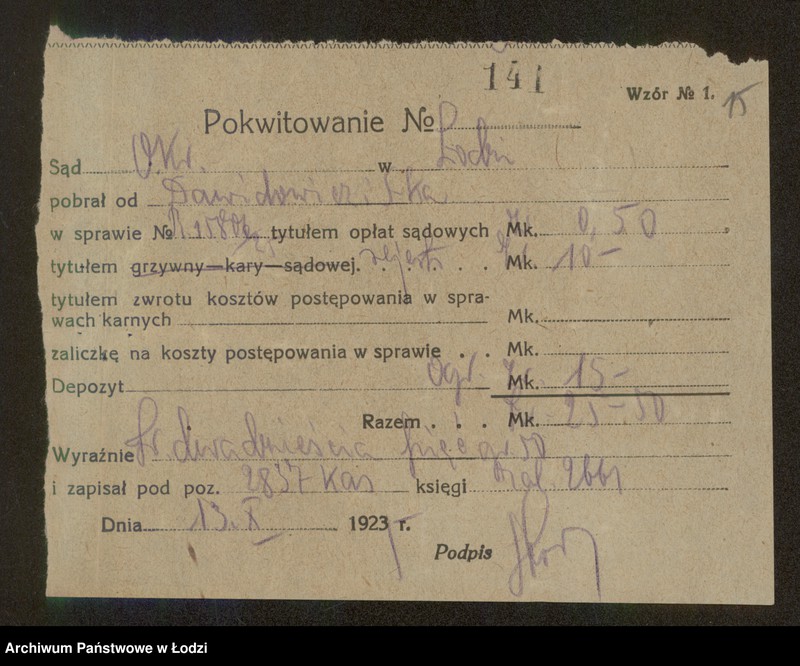 141
Wzór № 1. 15
Pokwitowanie №
Sąd Okr. w Łodzi
pobrał od Dawidowicz i S-ka
w sprawie № tytułem opłat sądowych Mk. 0,50
tytułem grzywny—kary—sądowej. rejestr. Mk. 10—
tytułem zwrotu kosztów postępowania w spra-
wach karnych Mk.
zaliczkę na koszty postępowania w sprawie . . Mk.
Depozyt ogł. Mk. 15—
Razem . . . Mk. 25—50
Wyraźnie dwadzieścia pięć gr 50
i zapisał pod poz. 2837 Kas księgi 2661
Dnia 13.X 1923 r.
Podpis
Archiwum Państwowe w Łodzi